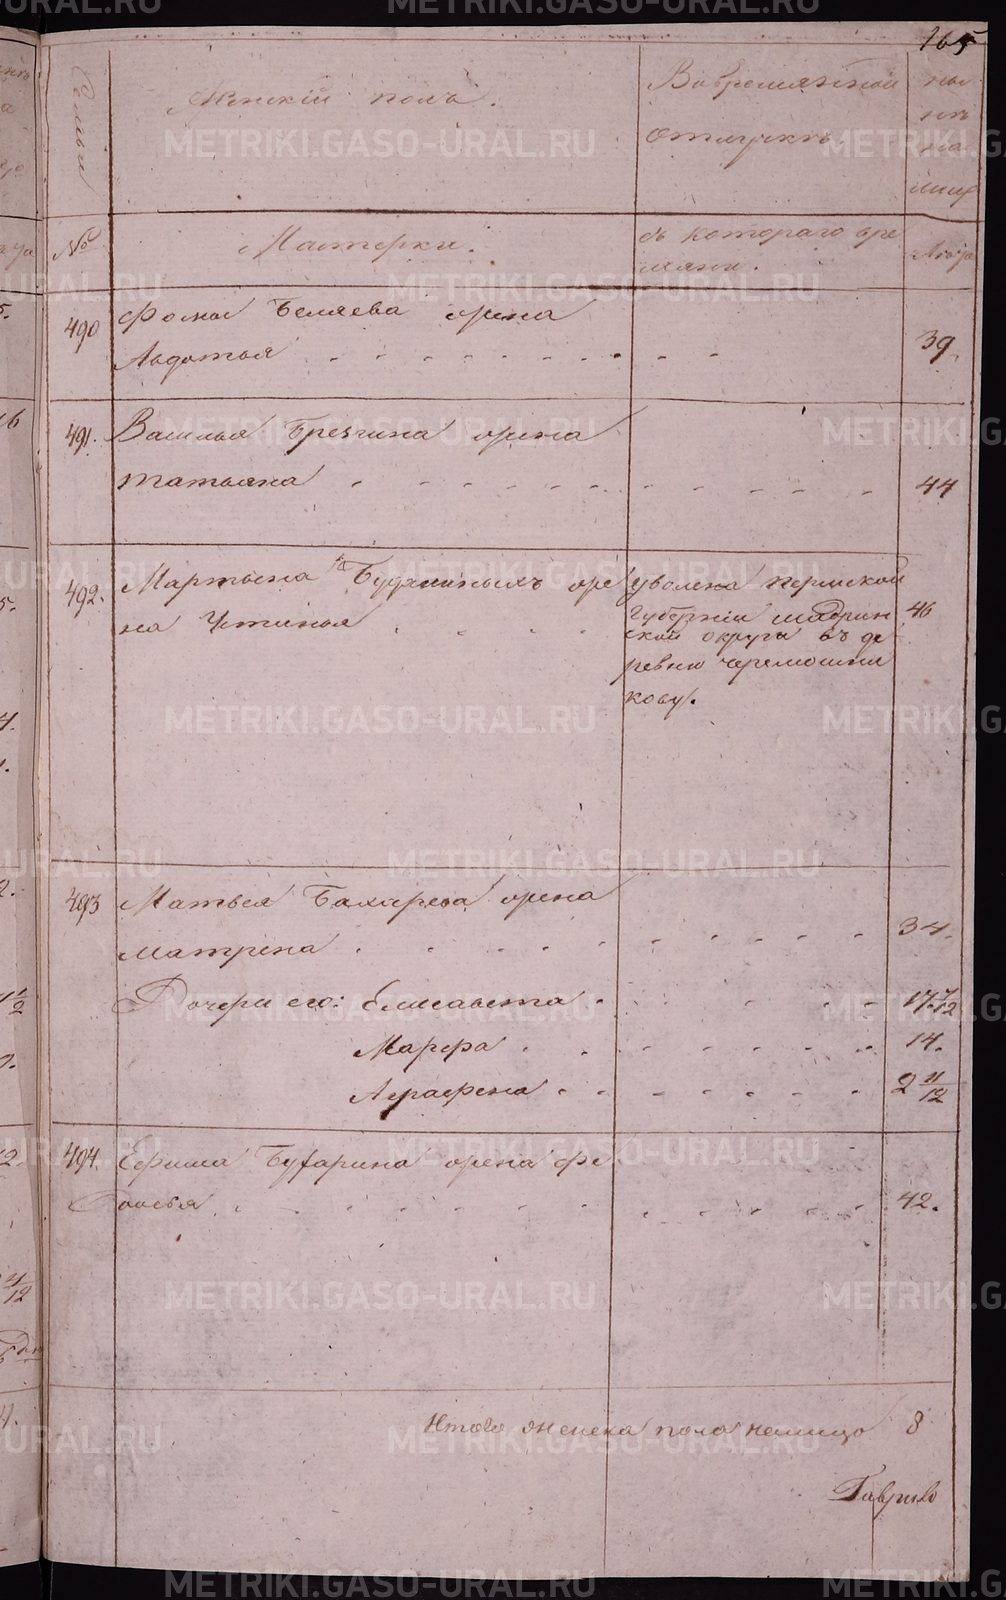 165
Семьи
Женскій полъ.
Вовремянной
отлучкѣ
ны
нѣ
на
лицо
№
Мастерки.
съ котораго вре
мяни.
Лѣта
490
Фомы Беляева жена
Авдотья
39.
491.
Василья Брезгина жена
Татьяна
44
492.
Мартына Будриныхъ же
на Устинья
уволена пермской
губерніи шадрин
ской округи въ де
ревню черемошни
кову.
46
493
Матвея Бахарева жена
Матрена
34.
Дочери его: Елисавета
17 7/12
Марфа
14.
Аграфена
2 11/12
494.
Ефима Бухарина жена Фе
досья
42.
Итого женска пола налицо 8
Гаврило
METRIKI.GASO-URAL.RU